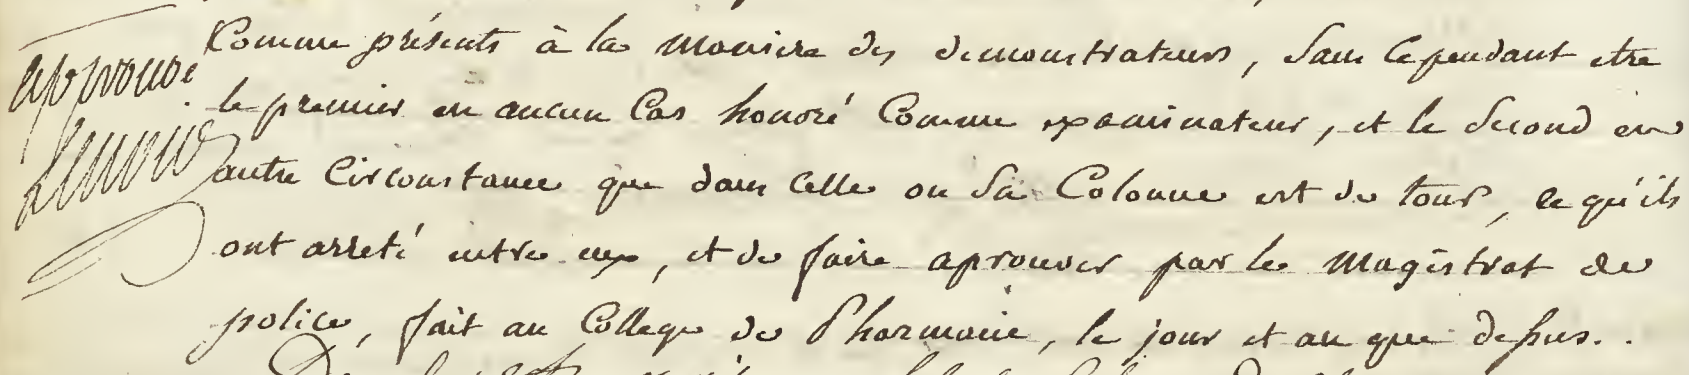 approuvé
Lenoir
Comme présents à la maniere des demonstrateurs, sans cependant etre
le premier en aucun Cas honoré Comme examinateur, et le second en
autre Circonstance que dans Celle ou sa Colonne est de tour, ce qu'ils
ont arreté entre eux, et de faire aprouver par le Magistrat de
police, fait au College de Pharmacie, le jour et an que dessus..